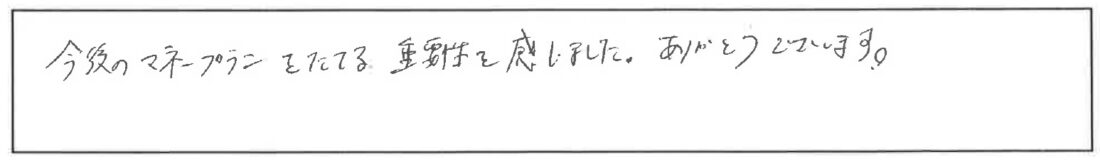 今後のマネープランをたてる重要性を感じました。ありがとうございます。